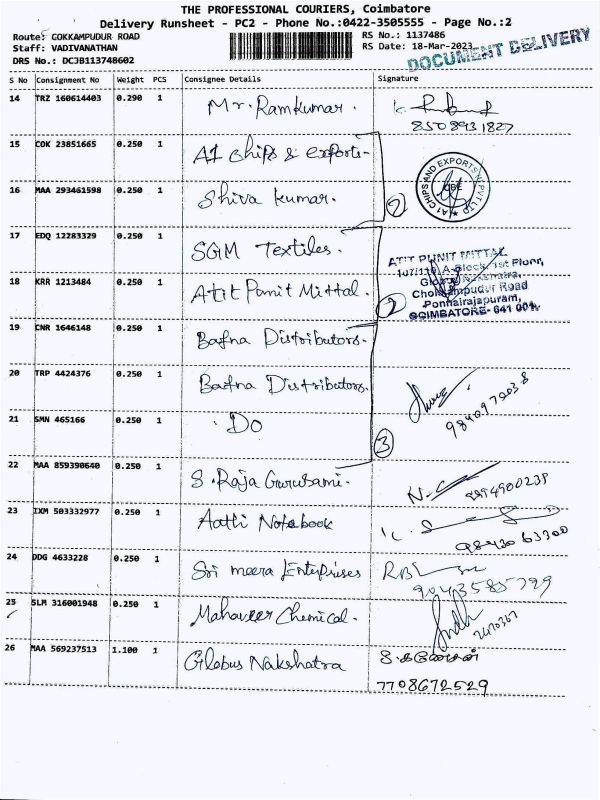 THE PROFESSIONAL COURIERS, Coimbatore
Delivery Runsheet - PC2 - Phone No.:0422-3505555 - Page No.:2
Route: GOKKAMPUDUR ROAD RS No.: 1137486
Staff: VADIVANATHAN RS Date: 18-Mar-2023
DRS No.: DCJB113748602 DOCUMENT DELIVERY
S No Consignment No Weight PCS Consignee Details Signature
14 TRZ 160614403 0.290 1 Mr. Ramkumar.
8508931827
15 COK 23851665 0.250 1 A1 chips & exports-
A1 CHIPS AND EXPORTS (I) PVT LTD
CBE
16 MAA 293461598 0.250 1 Shiva kumar. 2
17 EDQ 12283329 0.250 1 SGM Textiles.
ATIT PUNIT MITTAL
107/110, A-Block, 1st Floor,
18 KRR 1213484 0.250 1 Atit Punit Mittal. 2
Road
Ponnairajapuram,
COIMBATORE- 641 001.
19 CNR 1646148 0.250 1 Bafna Distributors.
20 TRP 4424376 0.250 1 Bafna Distributors.
21 SMN 465166 0.250 1 Do
3
22 MAA 859390640 0.250 1 S. Raja Gurusami.
23 IXM 503332977 0.250 1 Aathi Notebook
9843063300
24 DDG 4633228 0.250 1 Sri meera Enterprises
9043585799
25 SLM 316001948 0.250 1 Mahaveer Chemical.
2470367
26 MAA 569237513 1.100 1 Globus Nakshatra
7708672529